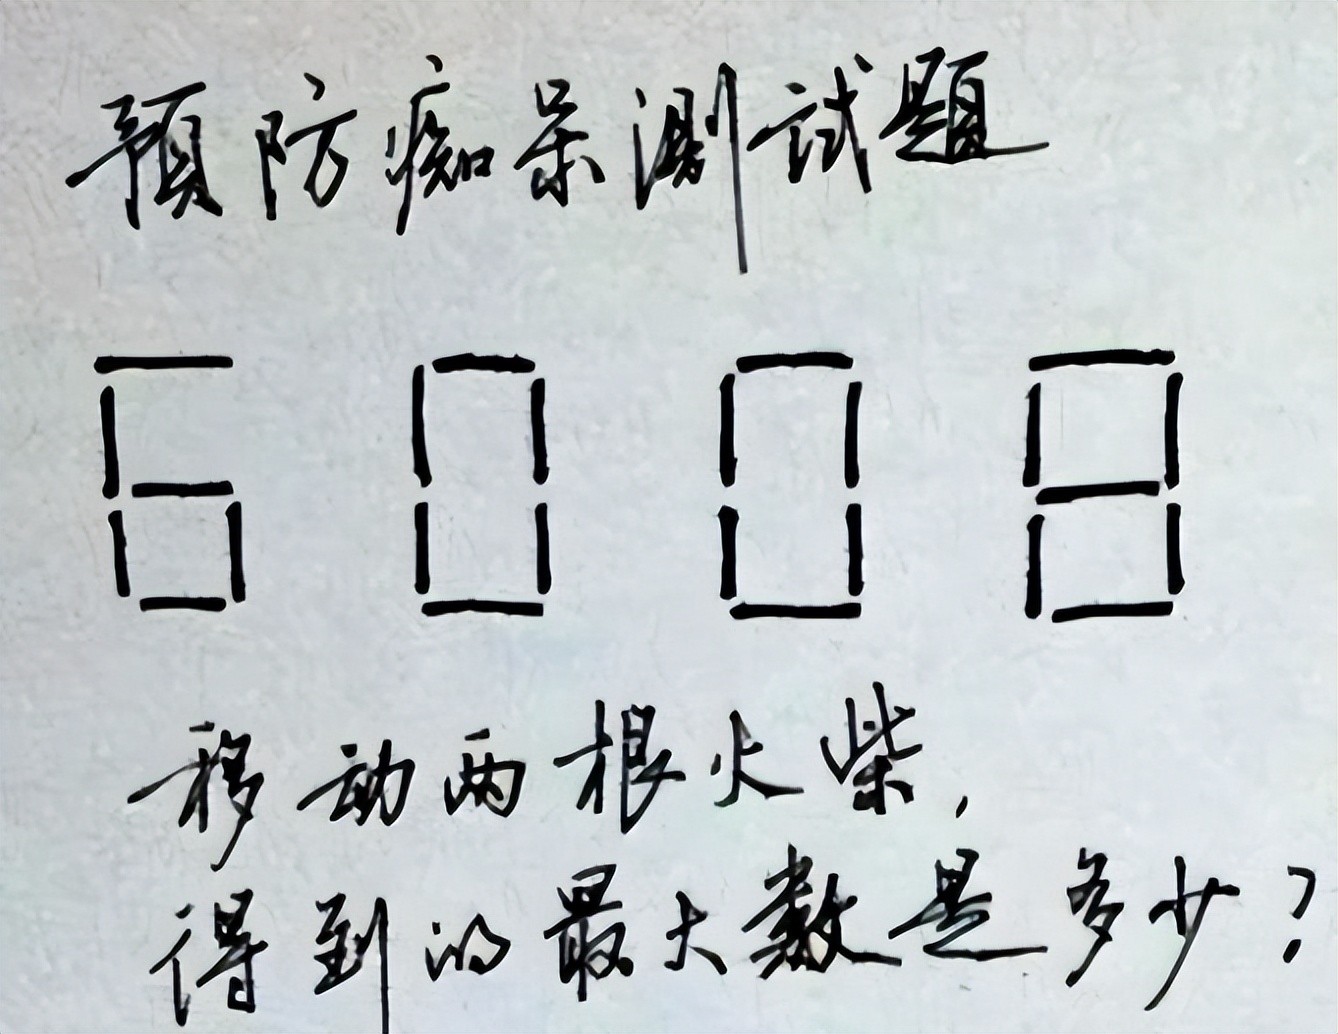 预防痴呆测试题
6008
移动两根火柴,
得到的最大数是多少?